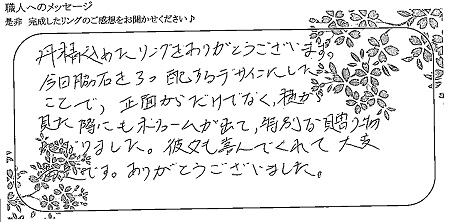 職人へのメッセージ
是非 完成したリングのご感想をお聞かせください♪
丹精込めたリングをありがとうございます。
今回脇石を3つ配するデザインにした
ことで、正面からだけでなく、横から
見た際にもボリュームが出て、特別な贈り物
になりました。彼女も喜んでくれて大変
です。ありがとうございました。